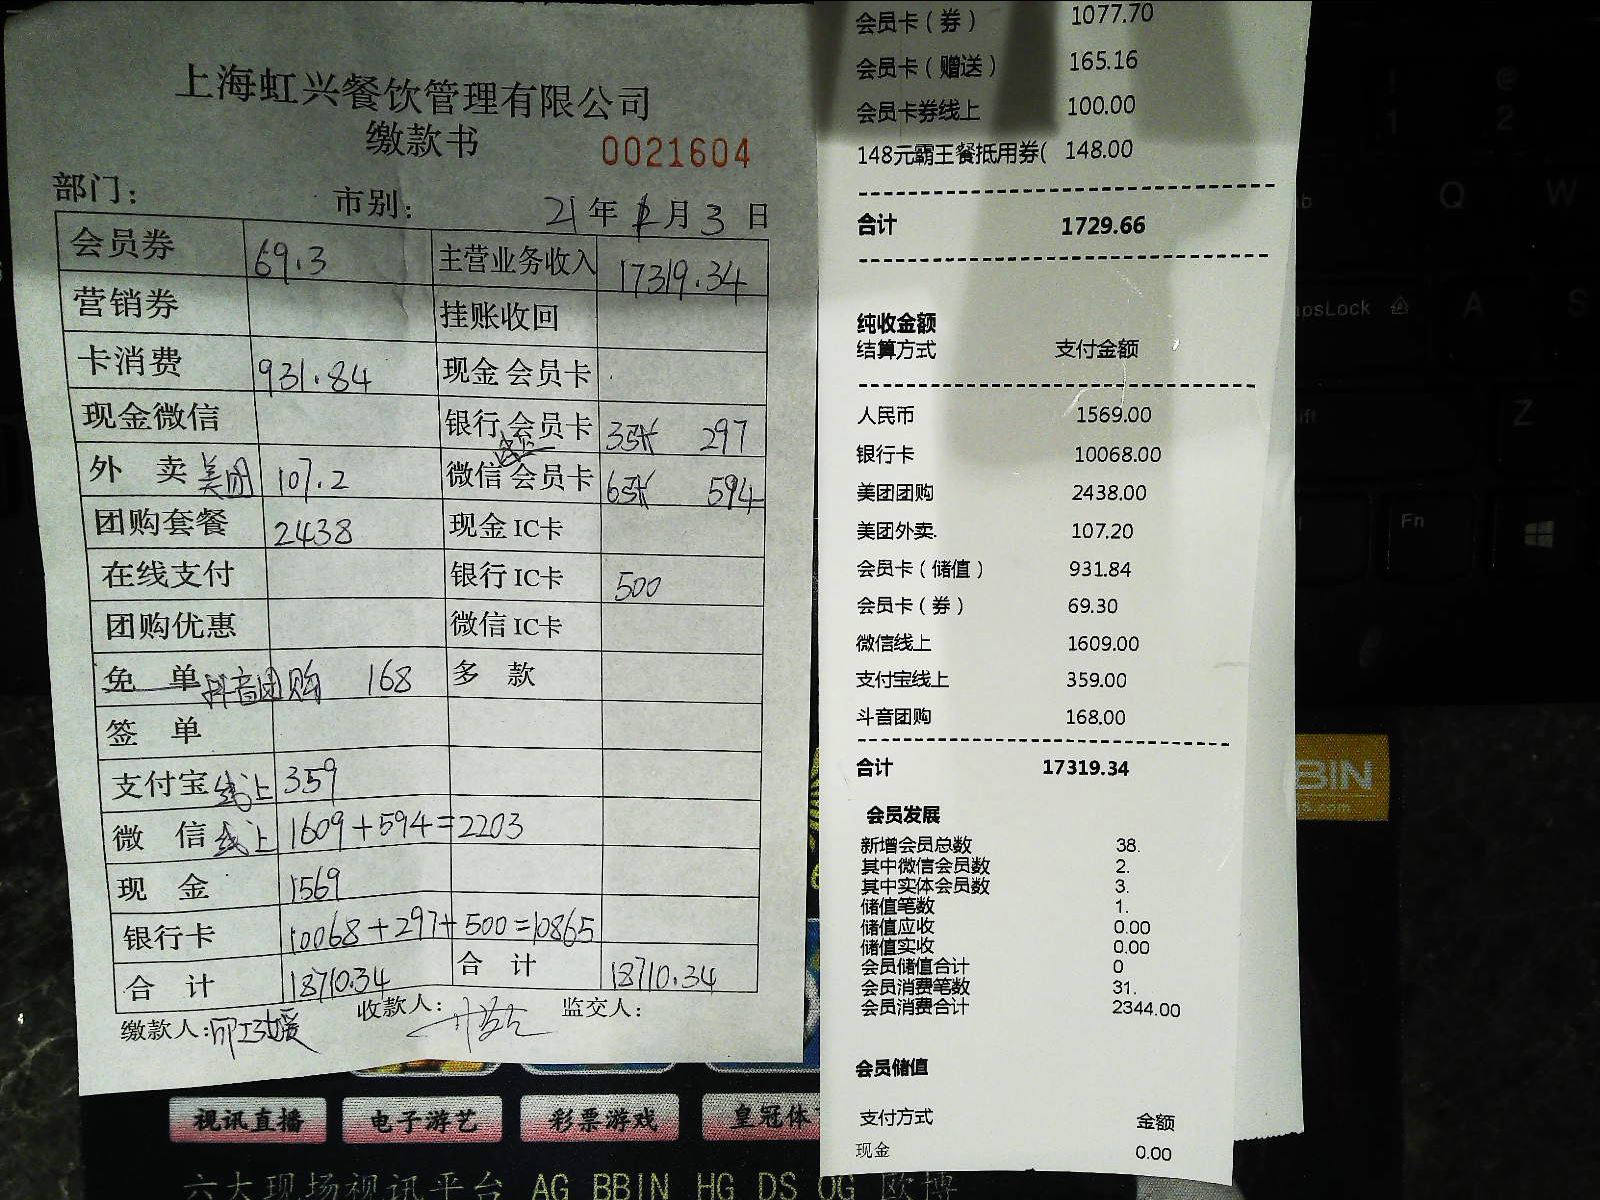 上海虹兴餐饮管理有限公司
缴款书
0021604
部门：
市别：
21年 月3日
会员券 69.3 主营业务收入 17319.34
营销券 挂账收回
卡消费 931.84 现金会员卡
现金微信 银行会员卡 3张 297
外卖美团 107.2 微信线上会员卡 6张 594
团购套餐 2438 现金IC卡
在线支付 银行IC卡 500
团购优惠 微信IC卡
免单 抖音团购 168 多款
签单
支付宝线上 359
微信线上 1609+594=2203
现金 1569
银行卡 10068+297+500=10865
合计 18710.34 合计 18710.34
缴款人： 收款人： 监交人：
会员卡（券） 1077.70
会员卡（赠送） 165.16
会员卡券线上 100.00
148元霸王餐抵用券( 148.00
合计 1729.66
纯收金额
结算方式 支付金额
人民币 1569.00
银行卡 10068.00
美团团购 2438.00
美团外卖. 107.20
会员卡（储值） 931.84
会员卡（券） 69.30
微信线上 1609.00
支付宝线上 359.00
斗音团购 168.00
合计 17319.34
会员发展
新增会员总数 38.
其中微信会员数 2.
其中实体会员数 3.
储值笔数 1.
储值应收 0.00
储值实收 0.00
会员储值合计 0
会员消费笔数 31.
会员消费合计 2344.00
会员储值
支付方式 金额
现金 0.00
@
2
1
Q
W
psLock
A
S
Z
Fn
BIN
视讯直播
电子游艺
彩票游戏
皇冠体
六大现场视讯平台 AG BBIN HG DS OG 欧博